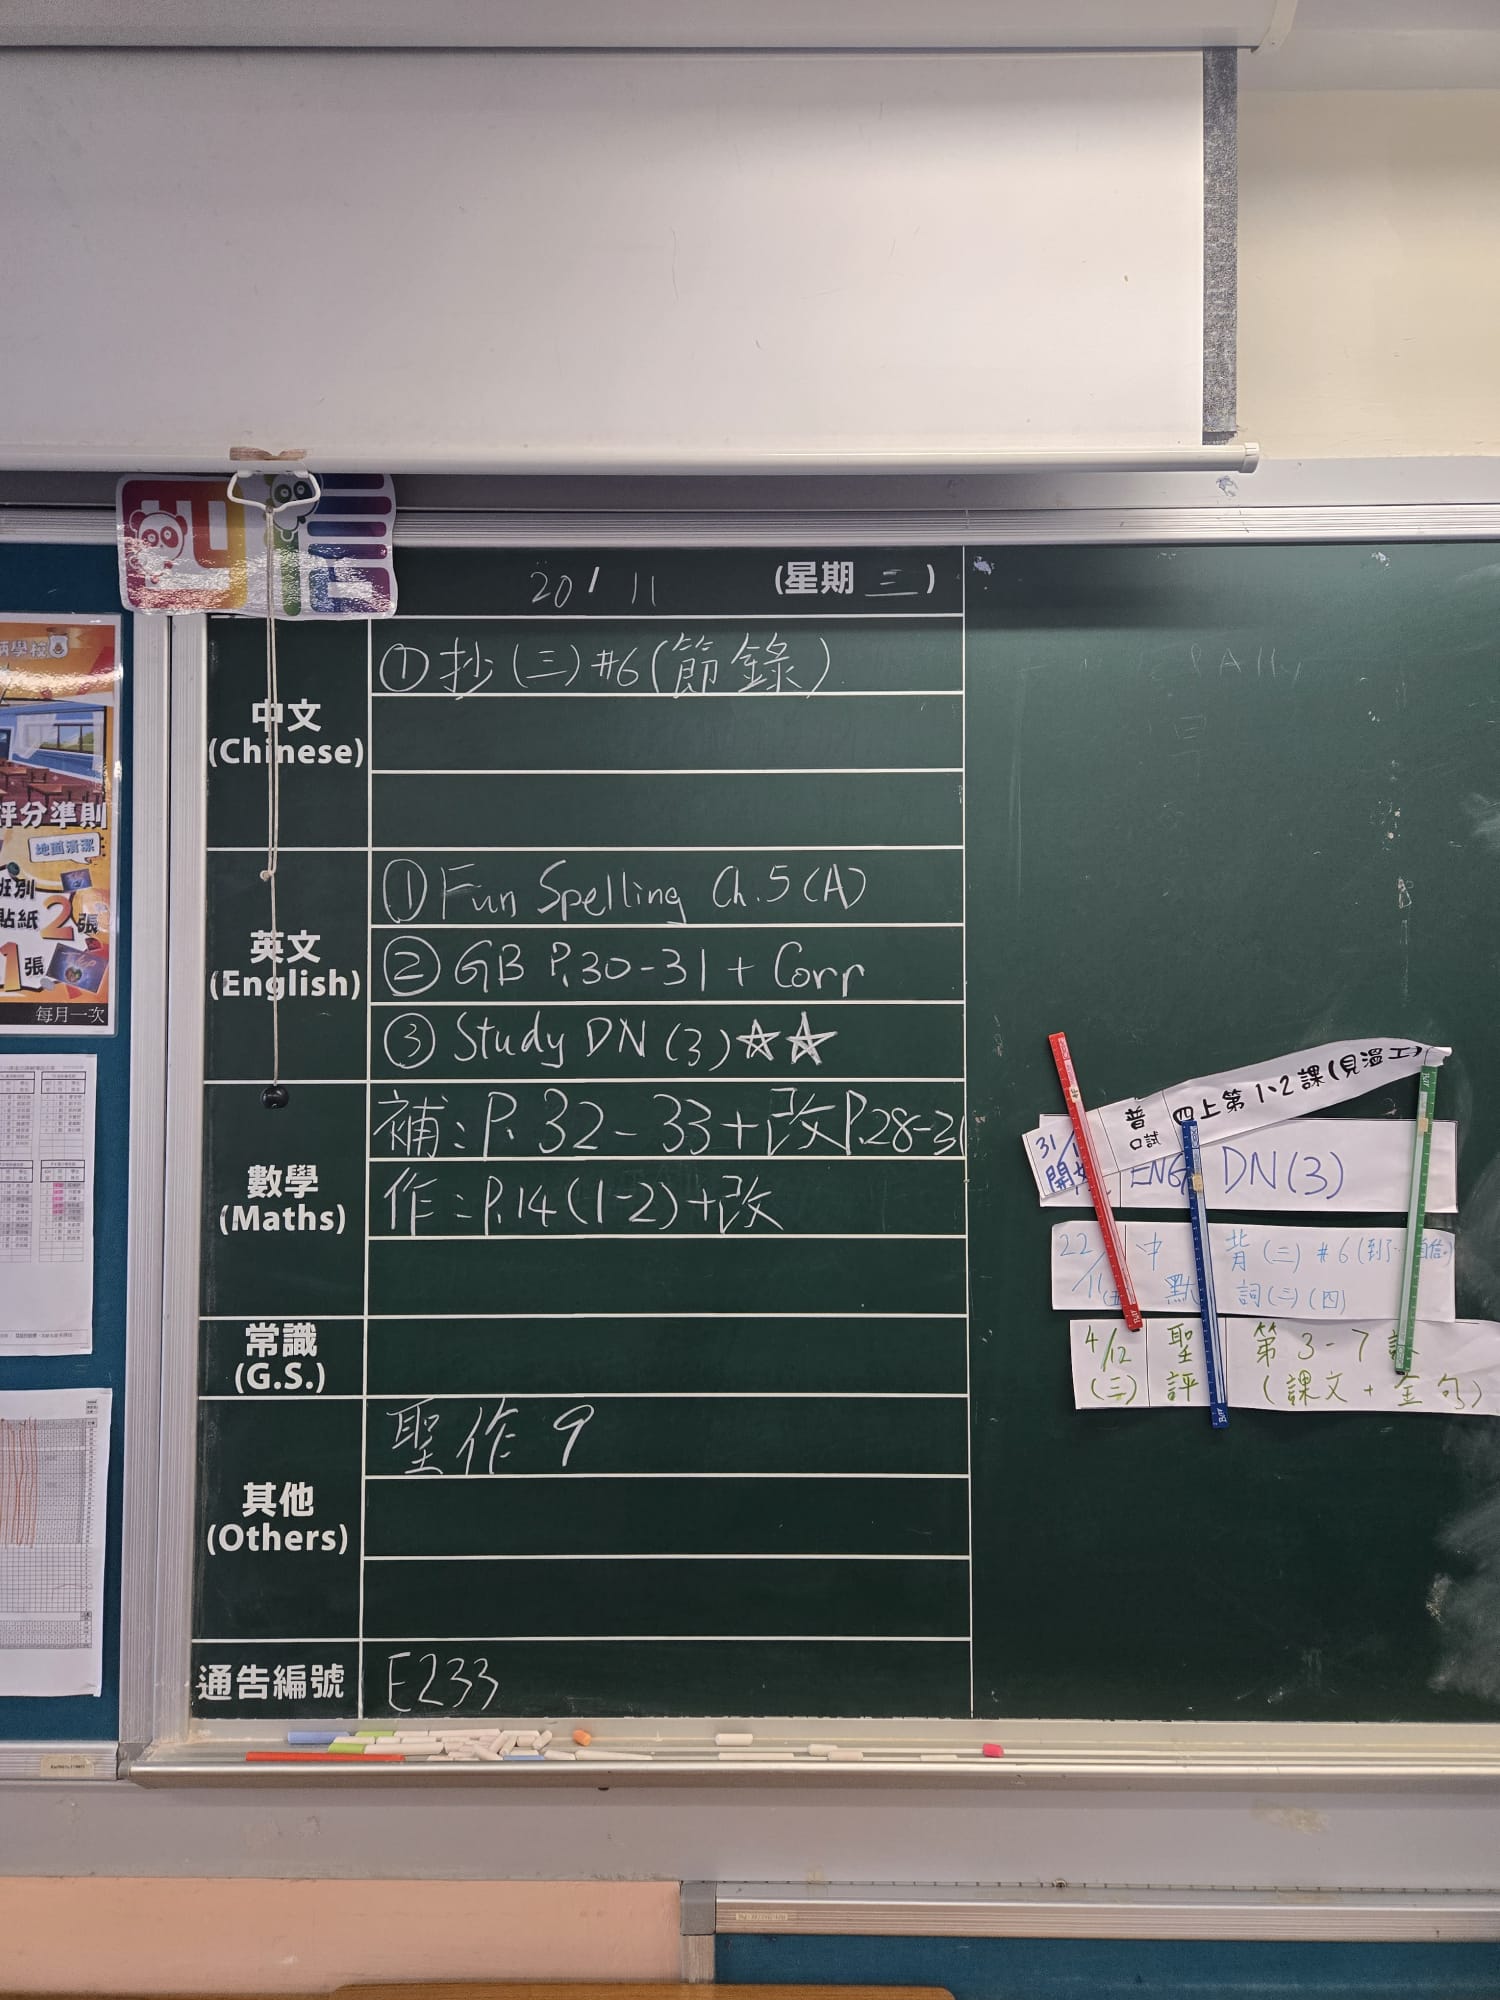 20/11 (星期三)
中文
(Chinese)
①抄(三)#6(節錄)
英文
(English)
①Fun Spelling Ch.5(A)
②GB P.30-31 + Corr
③Study DN(3)☆☆
數學
(Maths)
補:P.32-33+改P.28-31
作:P.14(1-2)+改
常識
(G.S.)
其他
(Others)
聖作9
通告編號
E233
普 四上第1、2課(見溫工)
口試
31/1
開始
ENG DN(3)
22/11 中 背(三)#6(到了
默 詞(三)(四)
4/12 聖 第3-7課
(三) 評 (課文+金句)
評分準則
地面清潔
班別
貼紙2張
1張
每月一次